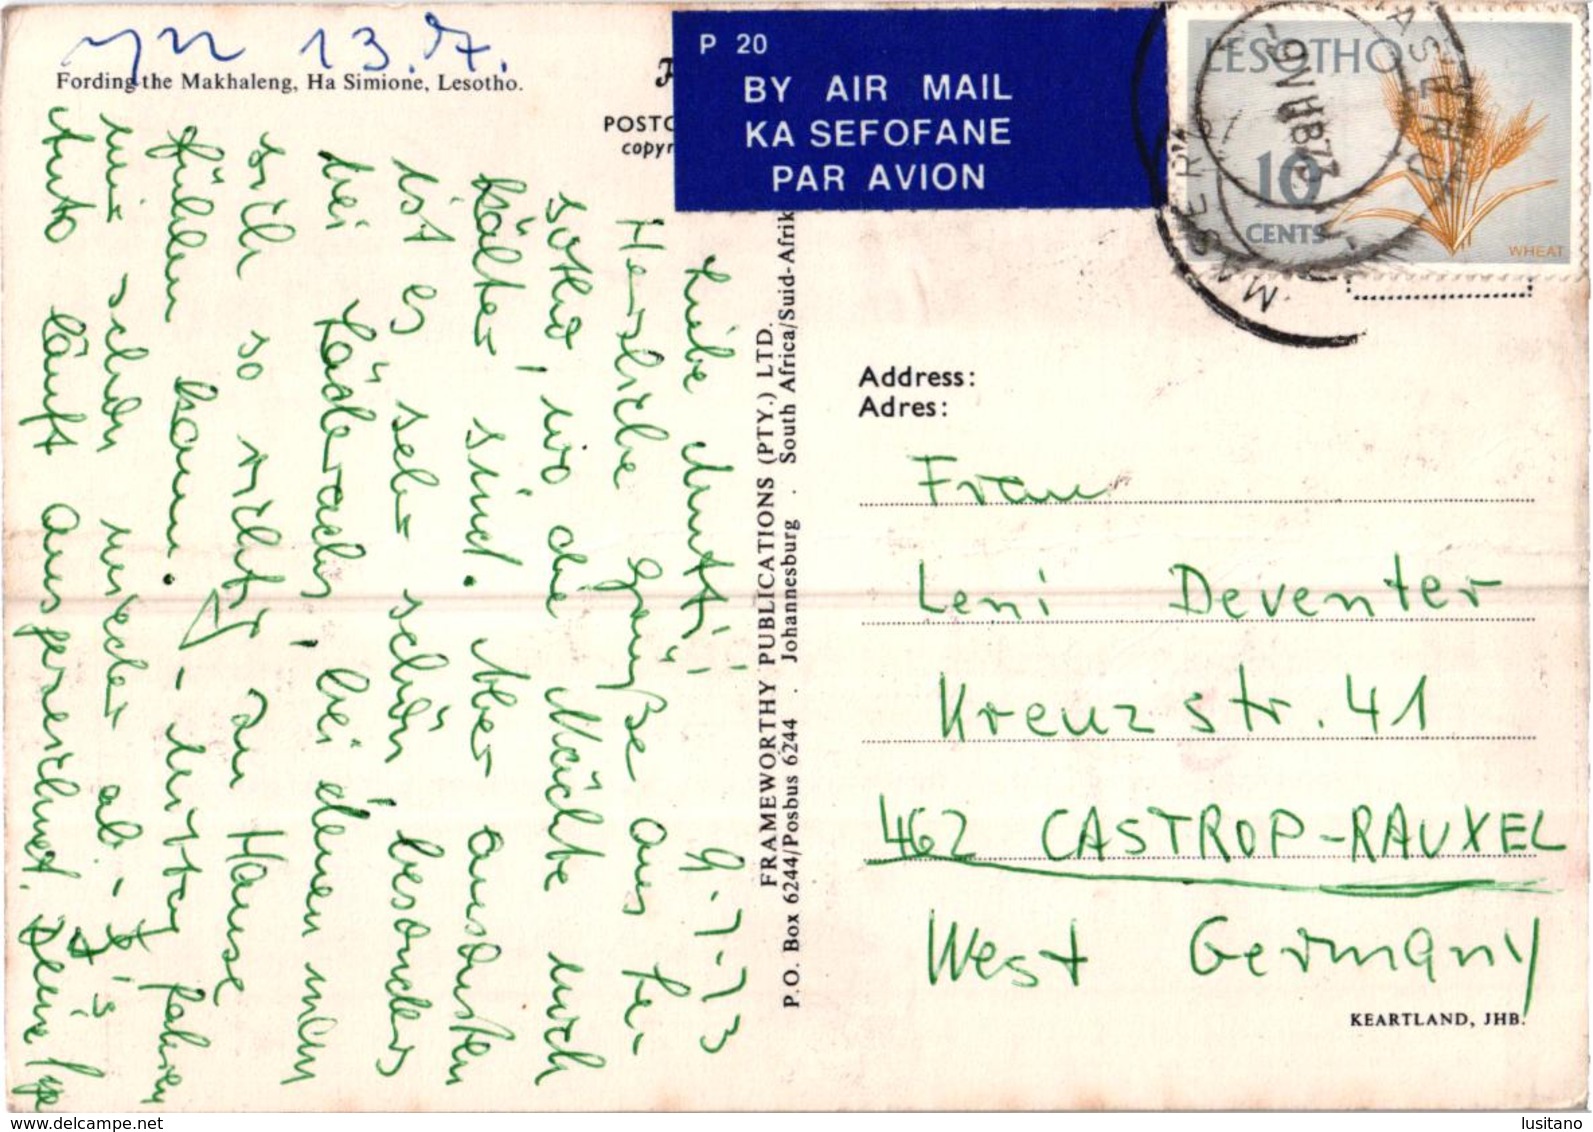 yn 13.7.
Fording the Makhaleng, Ha Simione, Lesotho.
POSTC
copyr
P 20
BY AIR MAIL
KA SEFOFANE
PAR AVION
LESOTHO
10
CENTS
WHEAT
MASERU
MASERU
9 VII 1973
9.7.73
Liebe Mutti,
Herzliche Grüße aus Le-
sotho, wo die Nächte noch
kälter sind. Aber ansonsten
ist es sehr schön, besonders
bei Läderachs, bei denen man
sich so richtig zu Hause
fühlen kann. - Mittag fahren
wir schon wieder ab. - 's
Auto läuft ausgezeichnet. Deine
FRAMEWORTHY PUBLICATIONS (PTY.) LTD.
P.O. Box 6244/Posbus 6244 . Johannesburg . South Africa/Suid-Afrik
Address:
Adres:
Frau
Leni Deventer
Kreuzstr. 41
462 CASTROP-RAUXEL
West Germany
KEARTLAND, JHB.
www.delcampe.net
lusitano